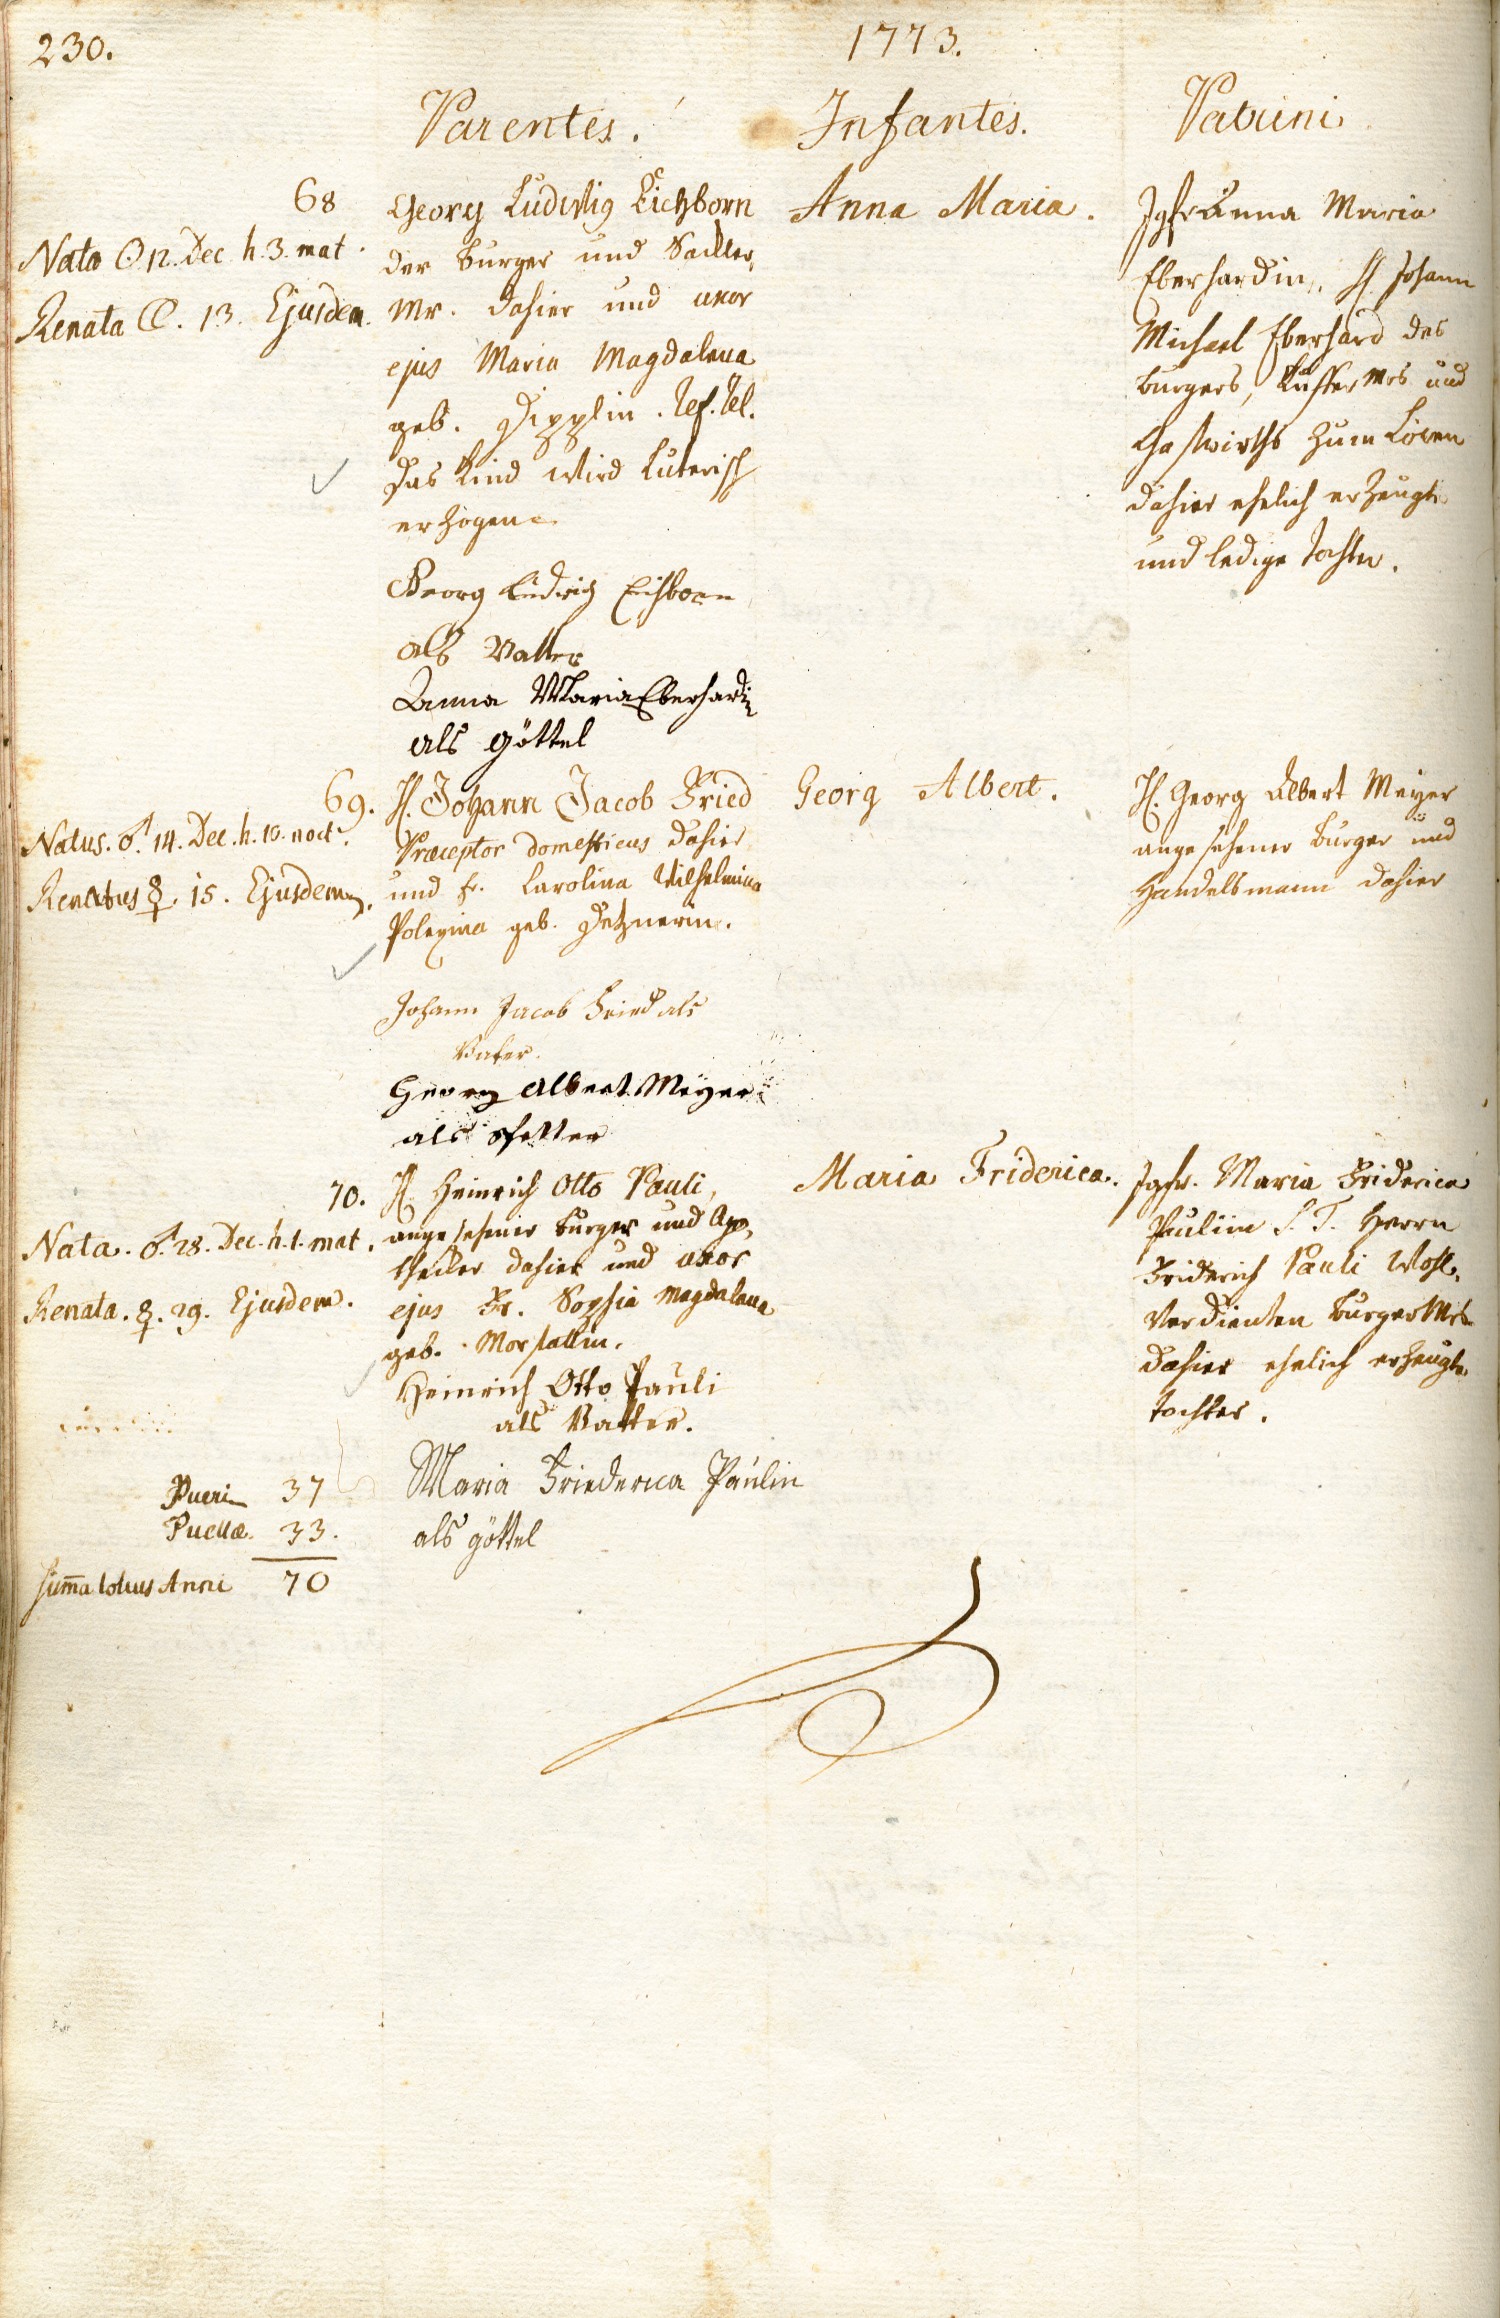 230.
1773.
Parentes.
Infantes.
Patrini
68
Nata ☉ 12. Dec h. 3. mat.
Renata ☾. 13. Ejusdem.
Georg Ludwig Eichborn
der Burger und Sadler,
Mr. dahier und uxor
ejus Maria Magdalena
geb. Dipplin. ref. rel.
das Kind wird Luterisch
erzogen
Georg Ludwig Eichborn
als Vatter
Anna Maria Eberhardin
als göttel
Anna Maria.
Jgfr Anna Maria
Eberhardin, H. Johann
Michael Eberhard des
burgers, Küffer Mrs und
Gastwirths zum Löwen
dahier ehelich erzeugte
und ledige Tochter.
69.
Natus. ♂. 14. Dec. h. 10. noct.
Renatus ☿. 15. Ejusdem.
H. Johann Jacob Fried
Præceptor domesticus dahier
und fr. Carolina Wilhelmina
Polexina geb. Detznerin.
Johann Jacob Fried als
Vater.
Georg Albert Meyer
als Pfetter
Georg Albert.
H. Georg Albert Meyer
angesehener burger und
Handelsmann dahier
70.
Nata. ♂. 28. Dec. h. 1. mat.
Renata. ☿. 29. Ejusdem.
H. Heinrich Otto Pauli,
angesehener burger und Apo,
theker dahier und uxor
ejus Fr. Sophia Magdalena
geb. Morstattin.
Heinrich Otto Pauli
als Vatter.
Maria Friederica Paulin
als göttel
Maria Friderica.
Jgfr. Maria Friderica
Pauliin S. T. Herrn
Friderich Pauli Wohl,
verdienten burger Mrs
dahier ehelich erzeugte
Tochter.
Pueri 37
Puellæ. 33.
Suma totius Anni 70